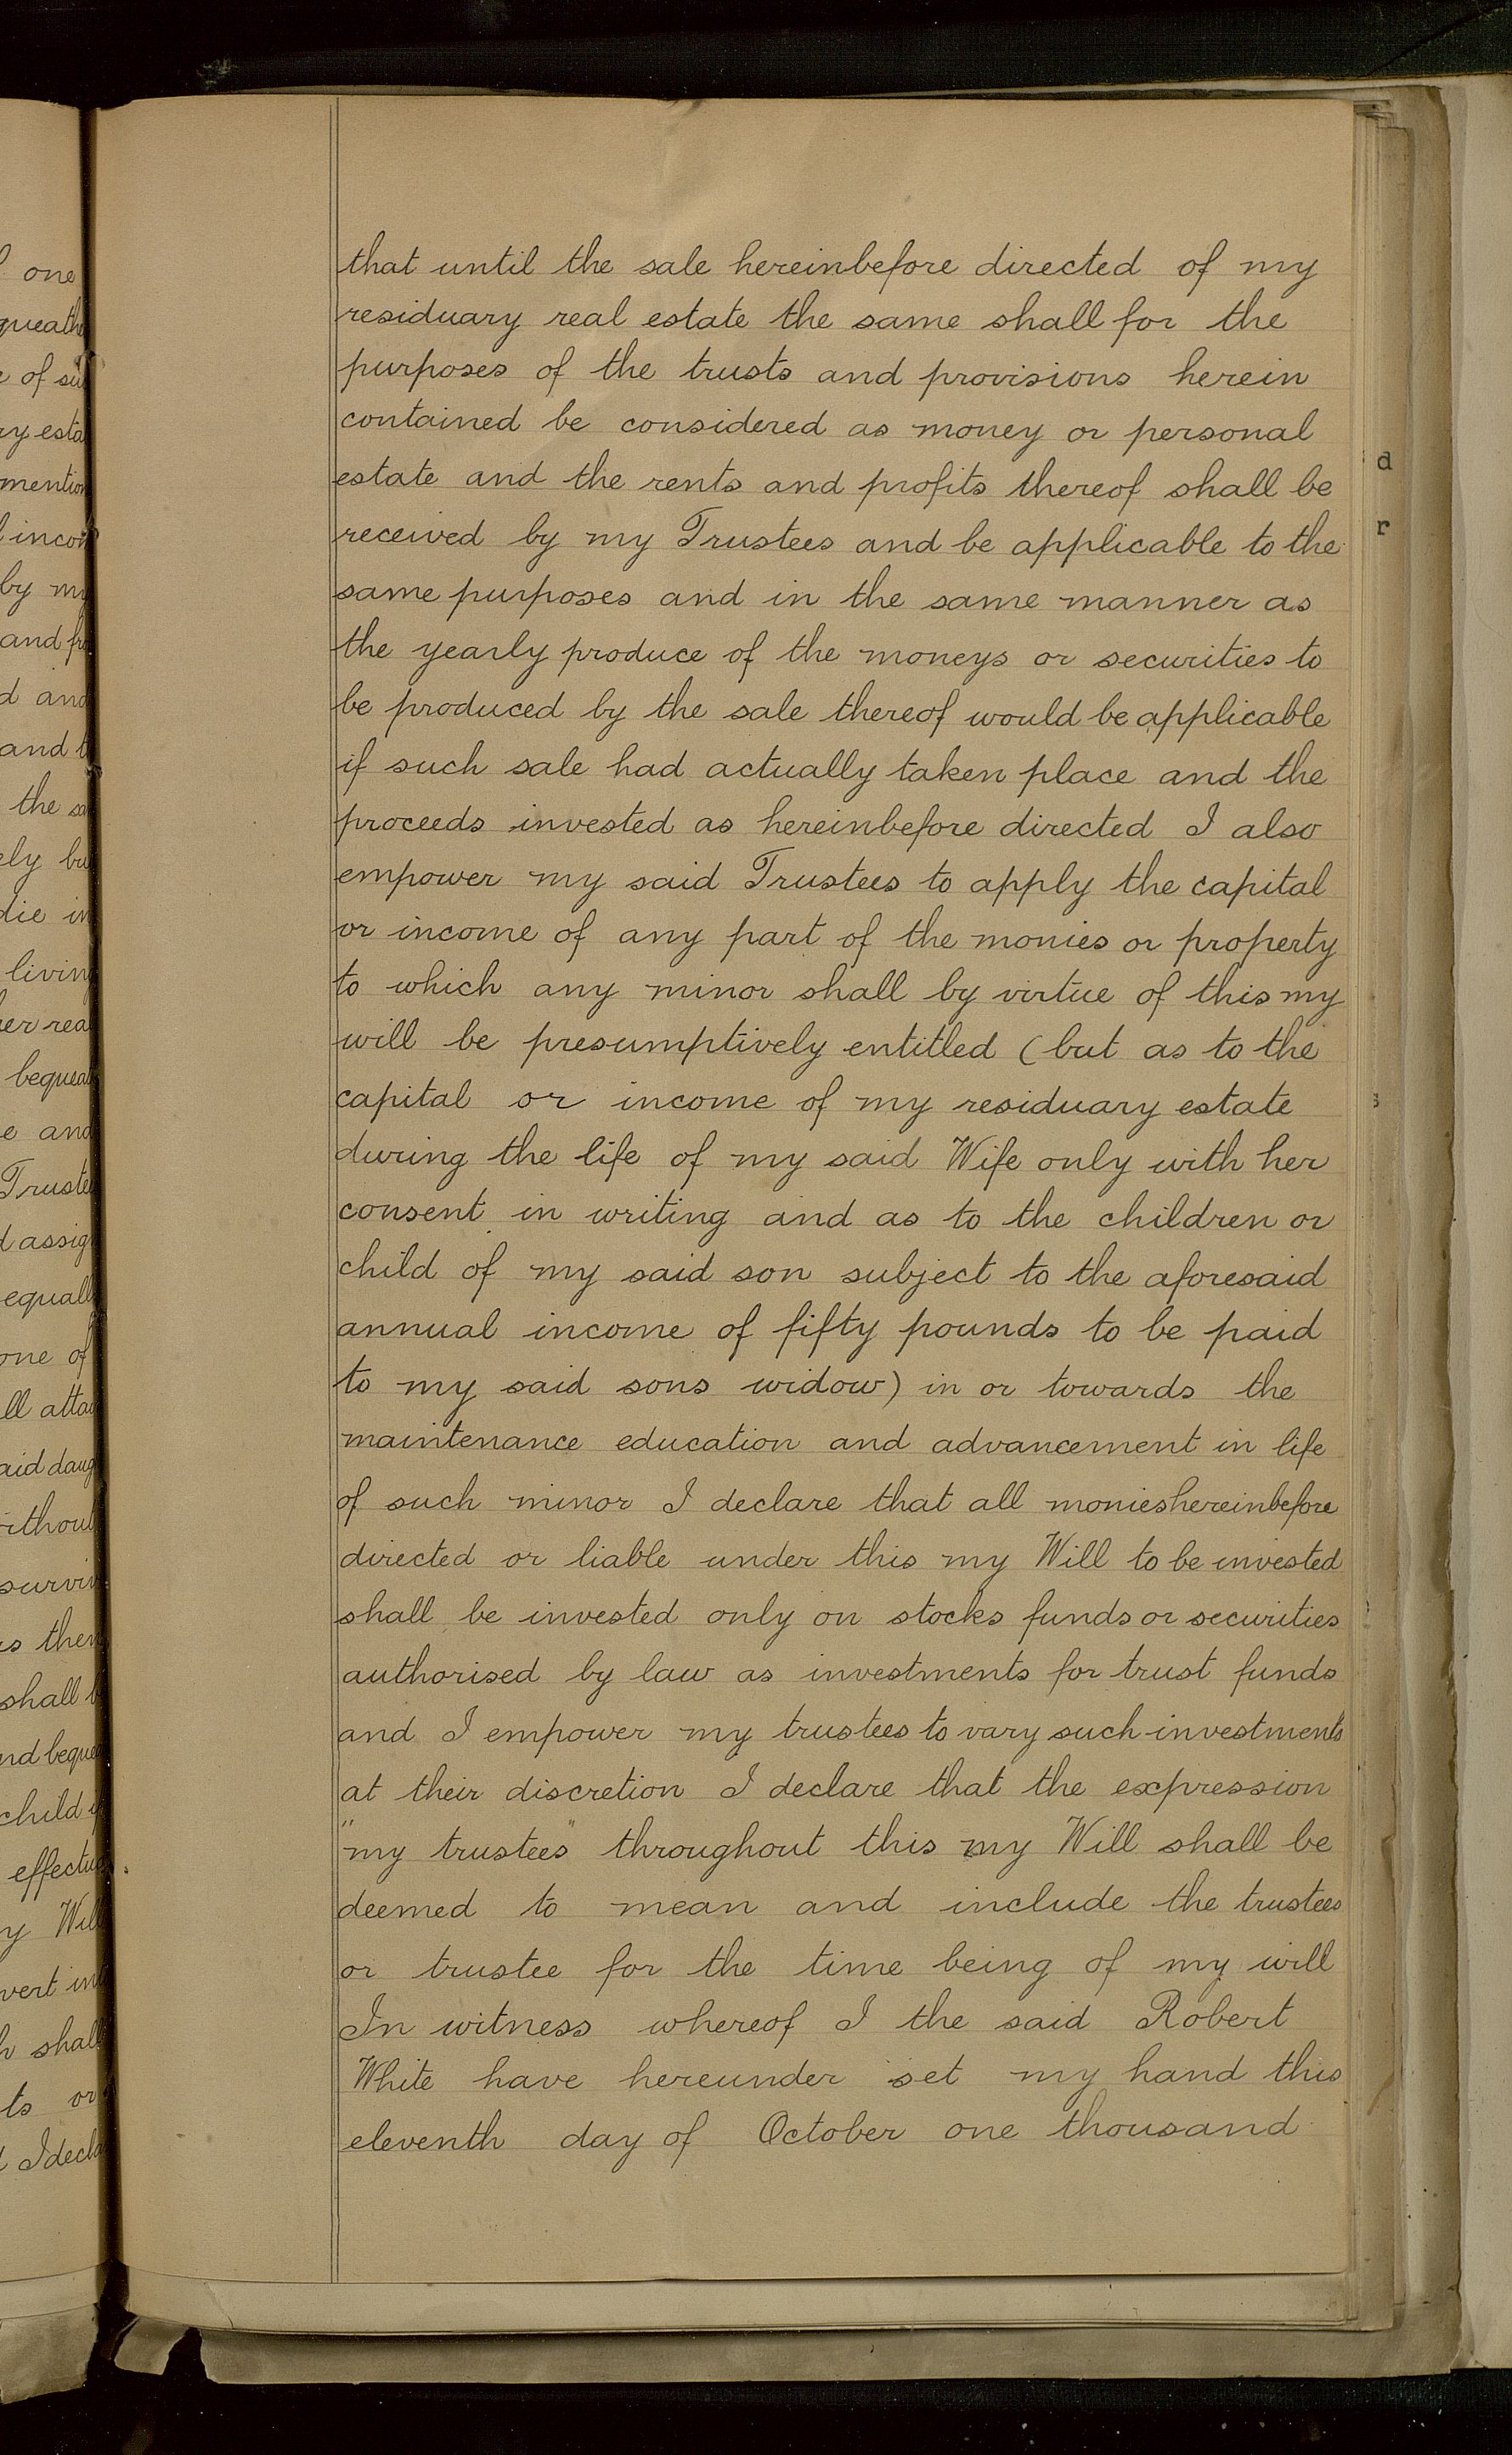 that until the sale hereinbefore directed of my
residuary real estate the same shall for the
purposes of the trusts and provisions herein
contained be considered as money or personal
estate and the rents and profits thereof shall be
received by my Trustees and be applicable to the
same purposes and in the same manner as
the yearly produce of the moneys or securities to
be produced by the sale thereof would be applicable
if such sale had actually taken place and the
proceeds invested as hereinbefore directed I also
empower my said Trustees to apply the capital
or income of any part of the monies or property
to which any minor shall by virtue of this my
will be presumptively entitled (but as to the
capital or income of my residuary estate
during the life of my said Wife only with her
consent in writing and as to the children or
child of my said son subject to the aforesaid
annual income of fifty pounds to be paid
to my said sons widow) in or towards the
maintenance education and advancement in life
of such minor I declare that all monies hereinbefore
directed or liable under this my Will to be invested
shall be invested only on stocks funds or securities
authorised by law as investments for trust funds
and I empower my trustees to vary such investments
at their discretion I declare that the expression
"my trustees" throughout this my Will shall be
deemed to mean and include the trustees
or trustee for the time being of my will
In witness whereof I the said Robert
White have hereunder set my hand this
eleventh day of October one thousand